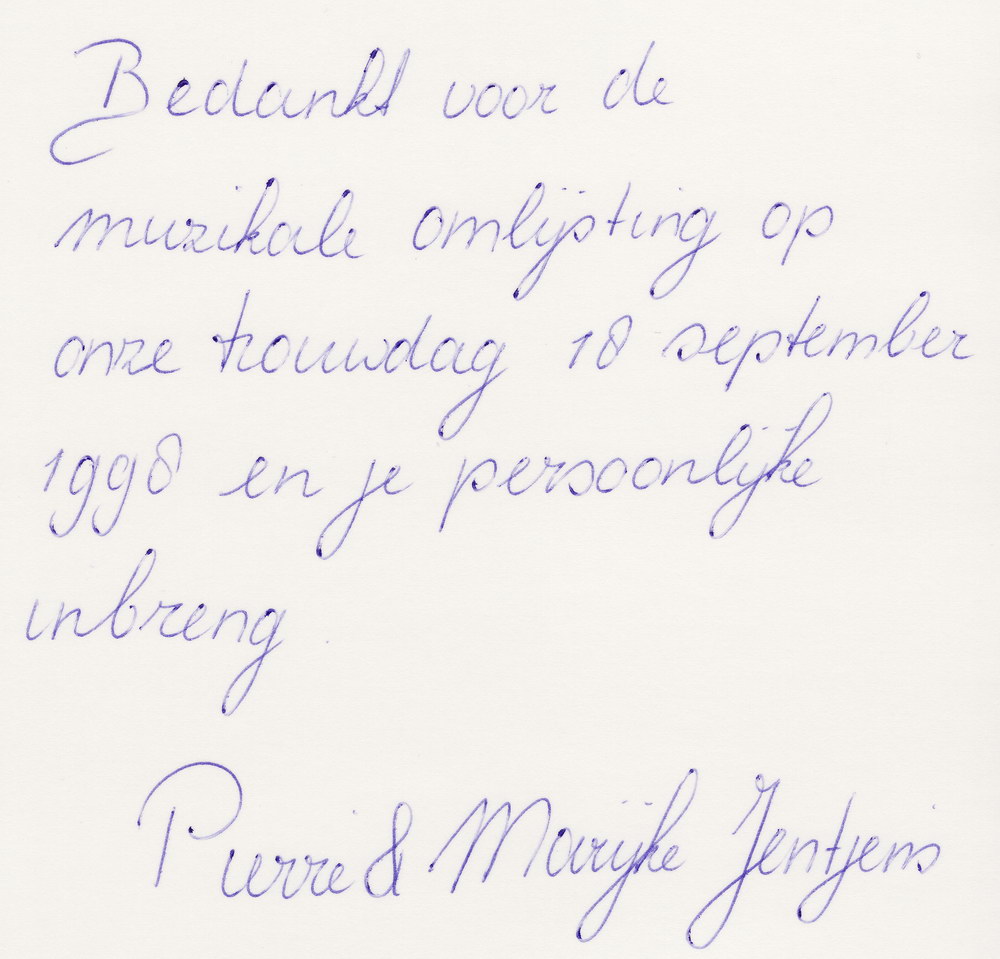 Bedankt voor de
muzikale omlijsting op
onze trouwdag 18 september
1998 en je persoonlijke
inbreng.
Pierre & Marijke Jentjens